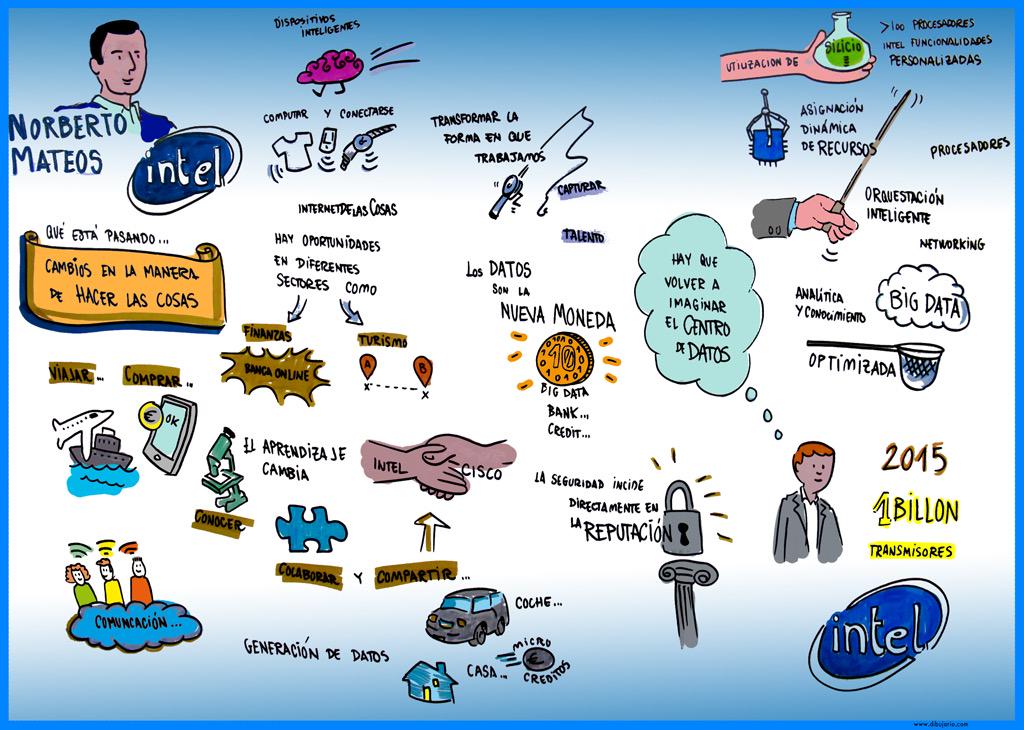 NORBERTO
MATEOS
intel
QUÉ ESTÁ PASANDO...
CAMBIOS EN LA MANERA
DE HACER LAS COSAS
VIAJAR...
COMPRAR...
€
OK
COMUNCACIÓN...
DISPOSITIVOS
INTELIGENTES
COMPUTAR Y CONECTARSE
INTERNET DE LAS COSAS
HAY OPORTUNIDADES
EN DIFERENTES
SECTORES COMO
FINANZAS
BANCA ONLINE
TURISMO
A
B
X
X
EL APRENDIZAJE
CAMBIA
CONOCER
INTEL
CISCO
COLABORAR Y COMPARTIR...
GENERACIÓN DE DATOS
COCHE...
CASA...
MICRO
€
CREDITOS
TRANSFORMAR LA
FORMA EN QUE
TRABAJAMOS
CAPTURAR
TALENTO
LOS DATOS
SON LA
NUEVA MONEDA
10
BIG DATA
BANK...
CREDIT...
LA SEGURIDAD INCIDE
DIRECTAMENTE EN
LA REPUTACIÓN
HAY QUE
VOLVER A
IMAGINAR
EL CENTRO
DE DATOS
UTILIZACION DE
SILICIO
>100 PROCESADORES
INTEL FUNCIONALIDADES
PERSONALIZADAS
ASIGNACIÓN
DINÁMICA
DE RECURSOS
PROCESADORES
ORQUESTACIÓN
INTELIGENTE
NETWORKING
ANALÍTICA
Y CONOCIMIENTO
BIG DATA
OPTIMIZADA
2015
1 BILLON
TRANSMISORES
intel
www.dibujario.com